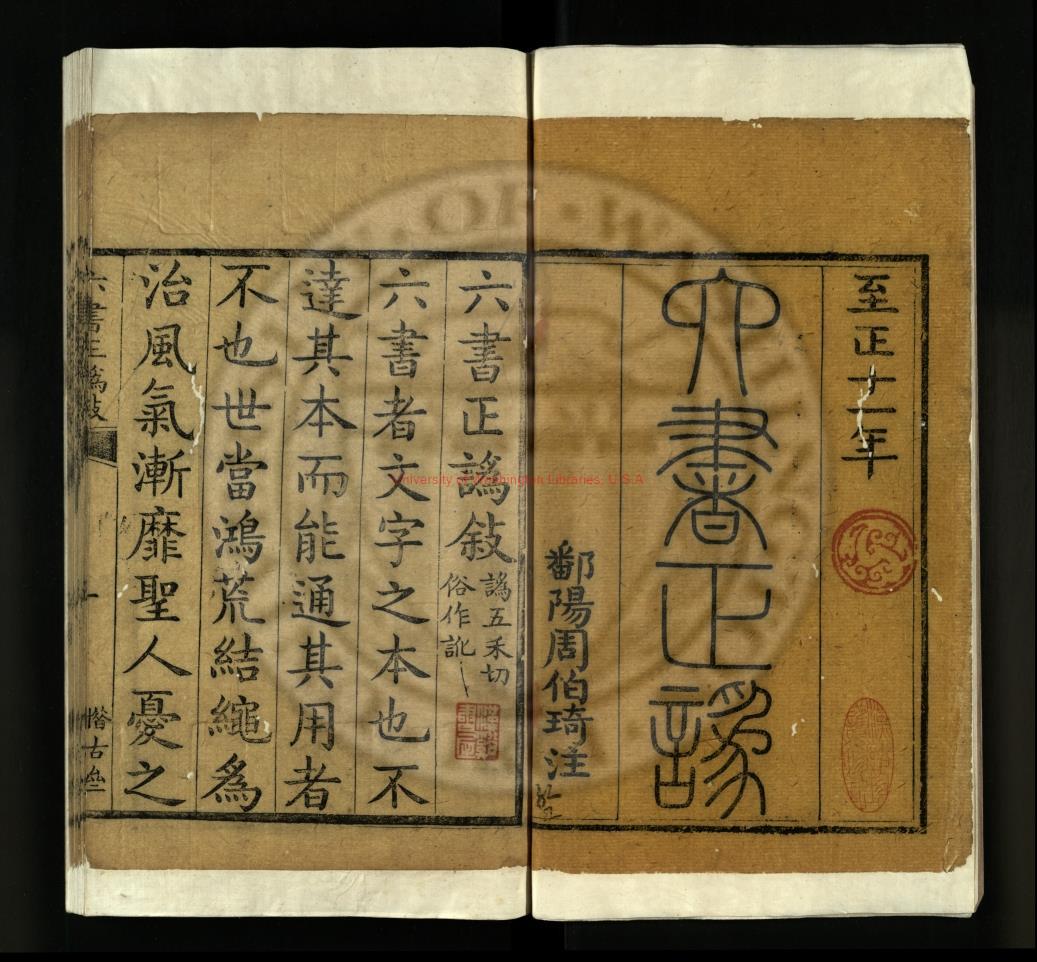 至正十一年
六書正譌
鄱陽周伯琦注
六書正譌敍 譌五禾切
俗作訛
六書者文字之本也不
達其本而能通其用者
不也世當鴻荒結繩為
治風氣漸靡聖人憂之
六書正譌敍
University of Washington Libraries, U.S.A